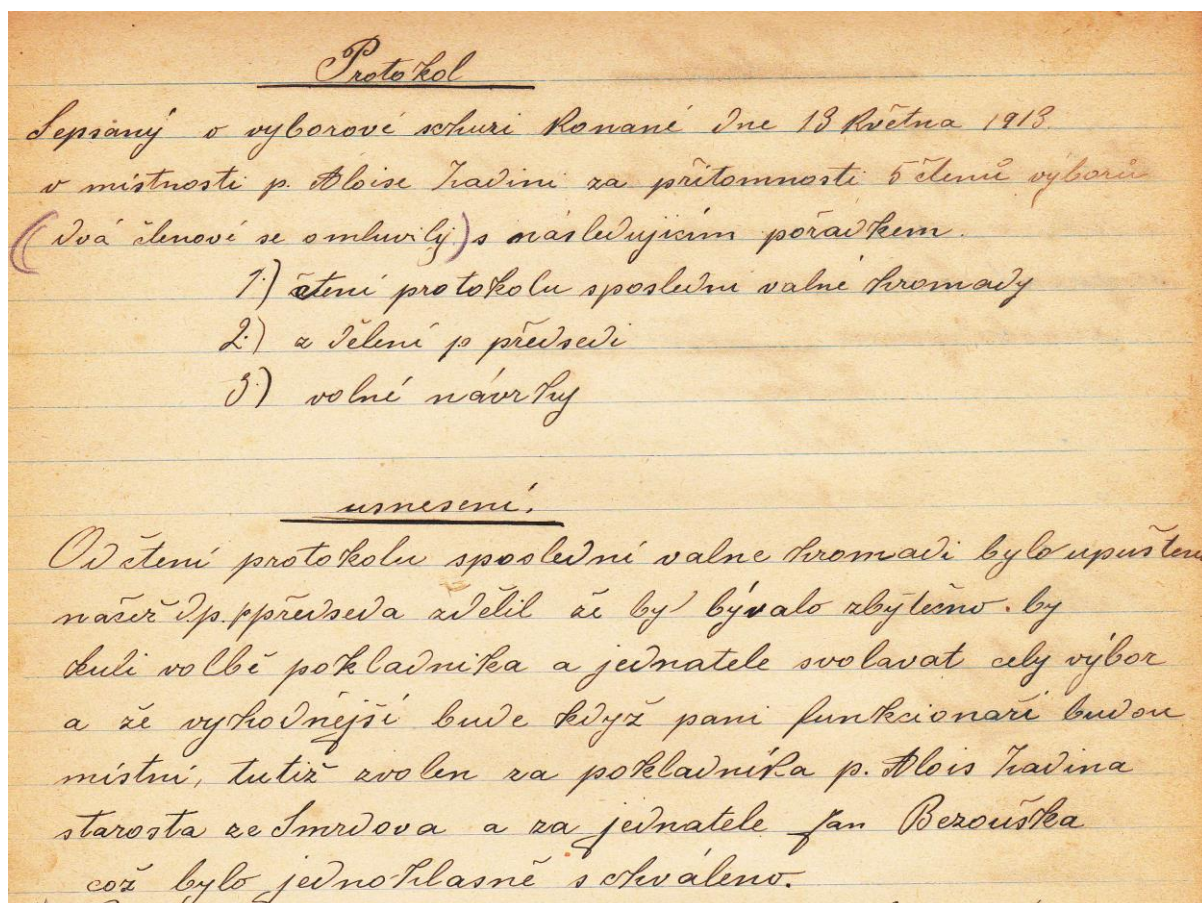 Protokol
Sepsaný o vyborové schuzi konané dne 13 Května 1913.
v místnosti p. Aloise Zadini za přítomnosti 5 členů výborů
(dvá členové se omluvily.) s následujicím pořádkem.
1.) čtení protokolu sposledni valné hromady
2.) z dělení p předsedi
3.) volné návrhy
usnesení.
Od čtení protokolu sposlední valne hromadi bylo upuštěno
načež dp. předseda zdělil že by bývalo zbytečno. by
kuli volbě pokladníka a jednatele svolavat cely výbor
a že vyhodnější bude když pani funkcionaři budou
místní, tutiž zvolen za pokladníka p. Alois Zadina
starosta ze Smrdova a za jednatele Jan Bezouška
což bylo jednohlasně schváleno.